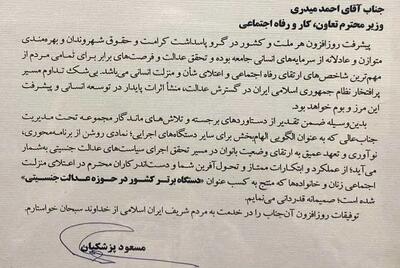 جناب آقای احمد میدری
وزیر محترم تعاون، کار و رفاه اجتماعی
پیشرفت روزافزون هر ملت و کشور در گرو پاسداشت کرامت و حقوق شهروندان و بهره‌مندی
متوازن و عادلانه از سرمایه‌های انسانی جامعه بوده و تحقق عدالت و فرصت‌های برابر برای تمامی مردم از
مهم‌ترین شاخص‌های ارتقای رفاه اجتماعی و اعتلای شأن و منزلت انسانی می‌باشد. بی‌شک تداوم مسیر
پرافتخار نظام جمهوری اسلامی ایران در گسترش عدالت، منشأ اثرات پایدار در توسعه انسانی و پیشرفت
این مرز و بوم خواهد بود.
بدین‌وسیله ضمن تقدیر از دستاوردهای برجسته و تلاش‌های ماندگار مجموعه تحت مدیریت
جناب‌عالی که به عنوان الگویی الهام‌بخش برای سایر دستگاه‌های اجرایی، نمادی روشن از برنامه‌محوری،
نوآوری و تعهد عمیق به ارتقای وضعیت بانوان در مسیر تحقق اجرای سیاست‌های عدالت جنسیتی به‌شمار
می‌آید؛ از عملکرد و ابتکارات ممتاز و تحول‌آفرین شما و دست‌اندرکاران محترم در اعتلای منزلت
اجتماعی زنان و خانواده‌ها که منتج به کسب عنوان «دستگاه برتر کشور در حوزه عدالت جنسیتی»
شده است؛ صمیمانه قدردانی می‌نمایم.
توفیقات روزافزون آن‌جناب را در خدمت به مردم شریف ایران اسلامی از خداوند سبحان خواستارم.
مسعود پزشکیان